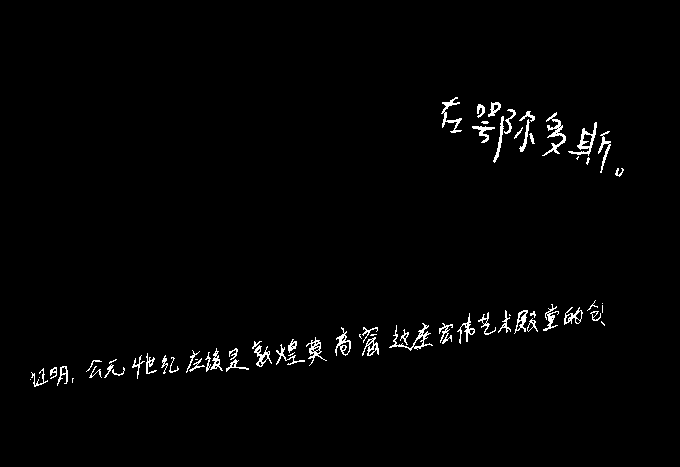 在鄂尔多斯。
证明,公元4世纪应该是敦煌莫高窟这座宏伟艺术殿堂的创